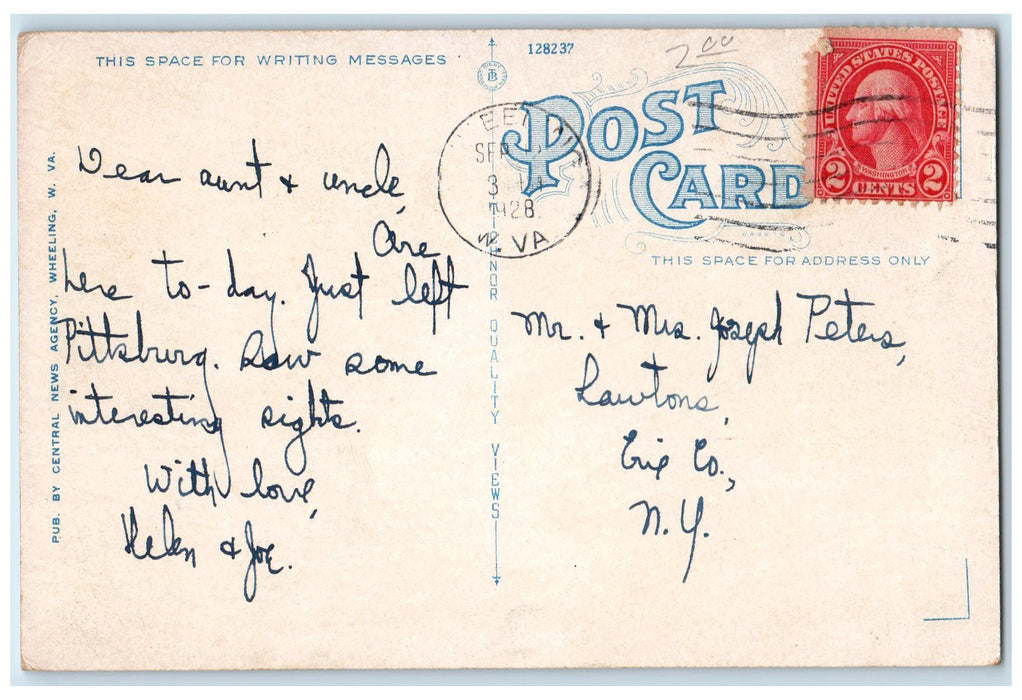 THIS SPACE FOR WRITING MESSAGES
Dear aunt & uncle,
Are
here to-day. Just left
Pittsburg. Saw some
interesting sights.
With love,
Helen & Joe.
PUB. BY CENTRAL NEWS AGENCY, WHEELING, W. VA.
QUALITY VIEWS
128237
2.00
POST
CARD
SEP
3
1928
W. VA
UNITED STATES POSTAGE
WASHINGTON
2 CENTS 2
THIS SPACE FOR ADDRESS ONLY
Mr. & Mrs. Joseph Peters,
Lawtons,
Erie Co.,
N.Y.